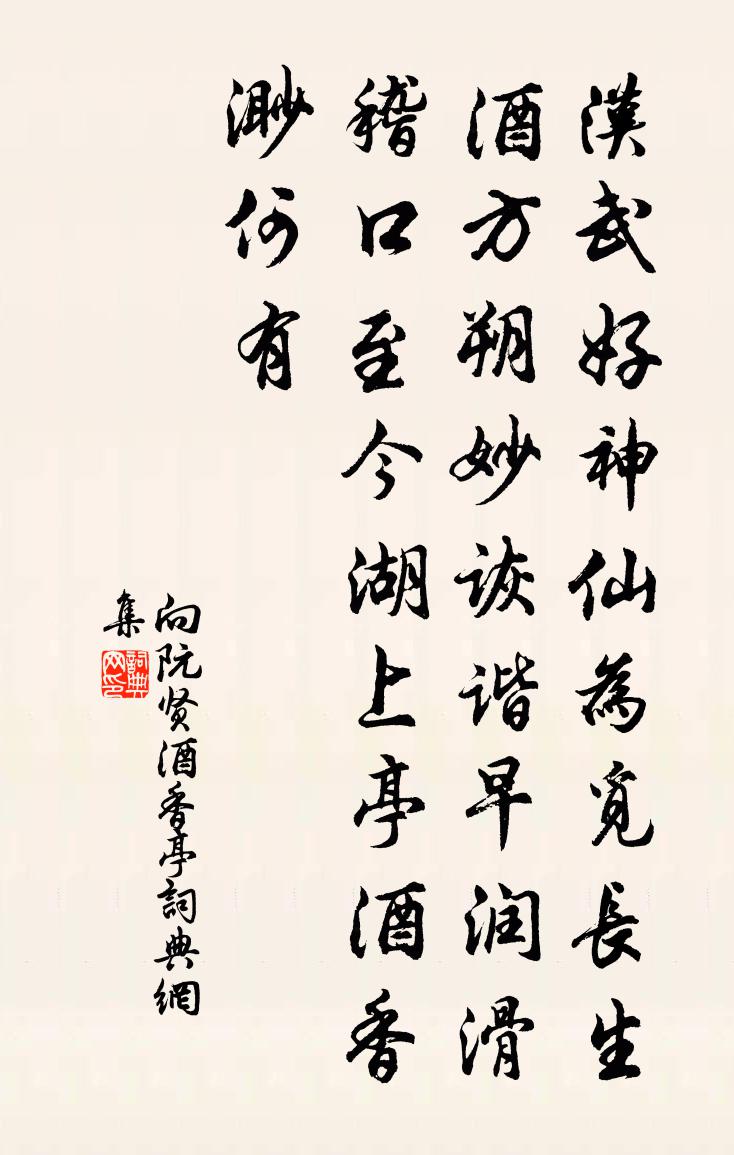 漢武好神仙為覓長生
酒方朔妙詼谐早润滑
稽口至今湖上亭酒香
渺何有
向阮贤酒香亭詞典網
集
詞典
网印